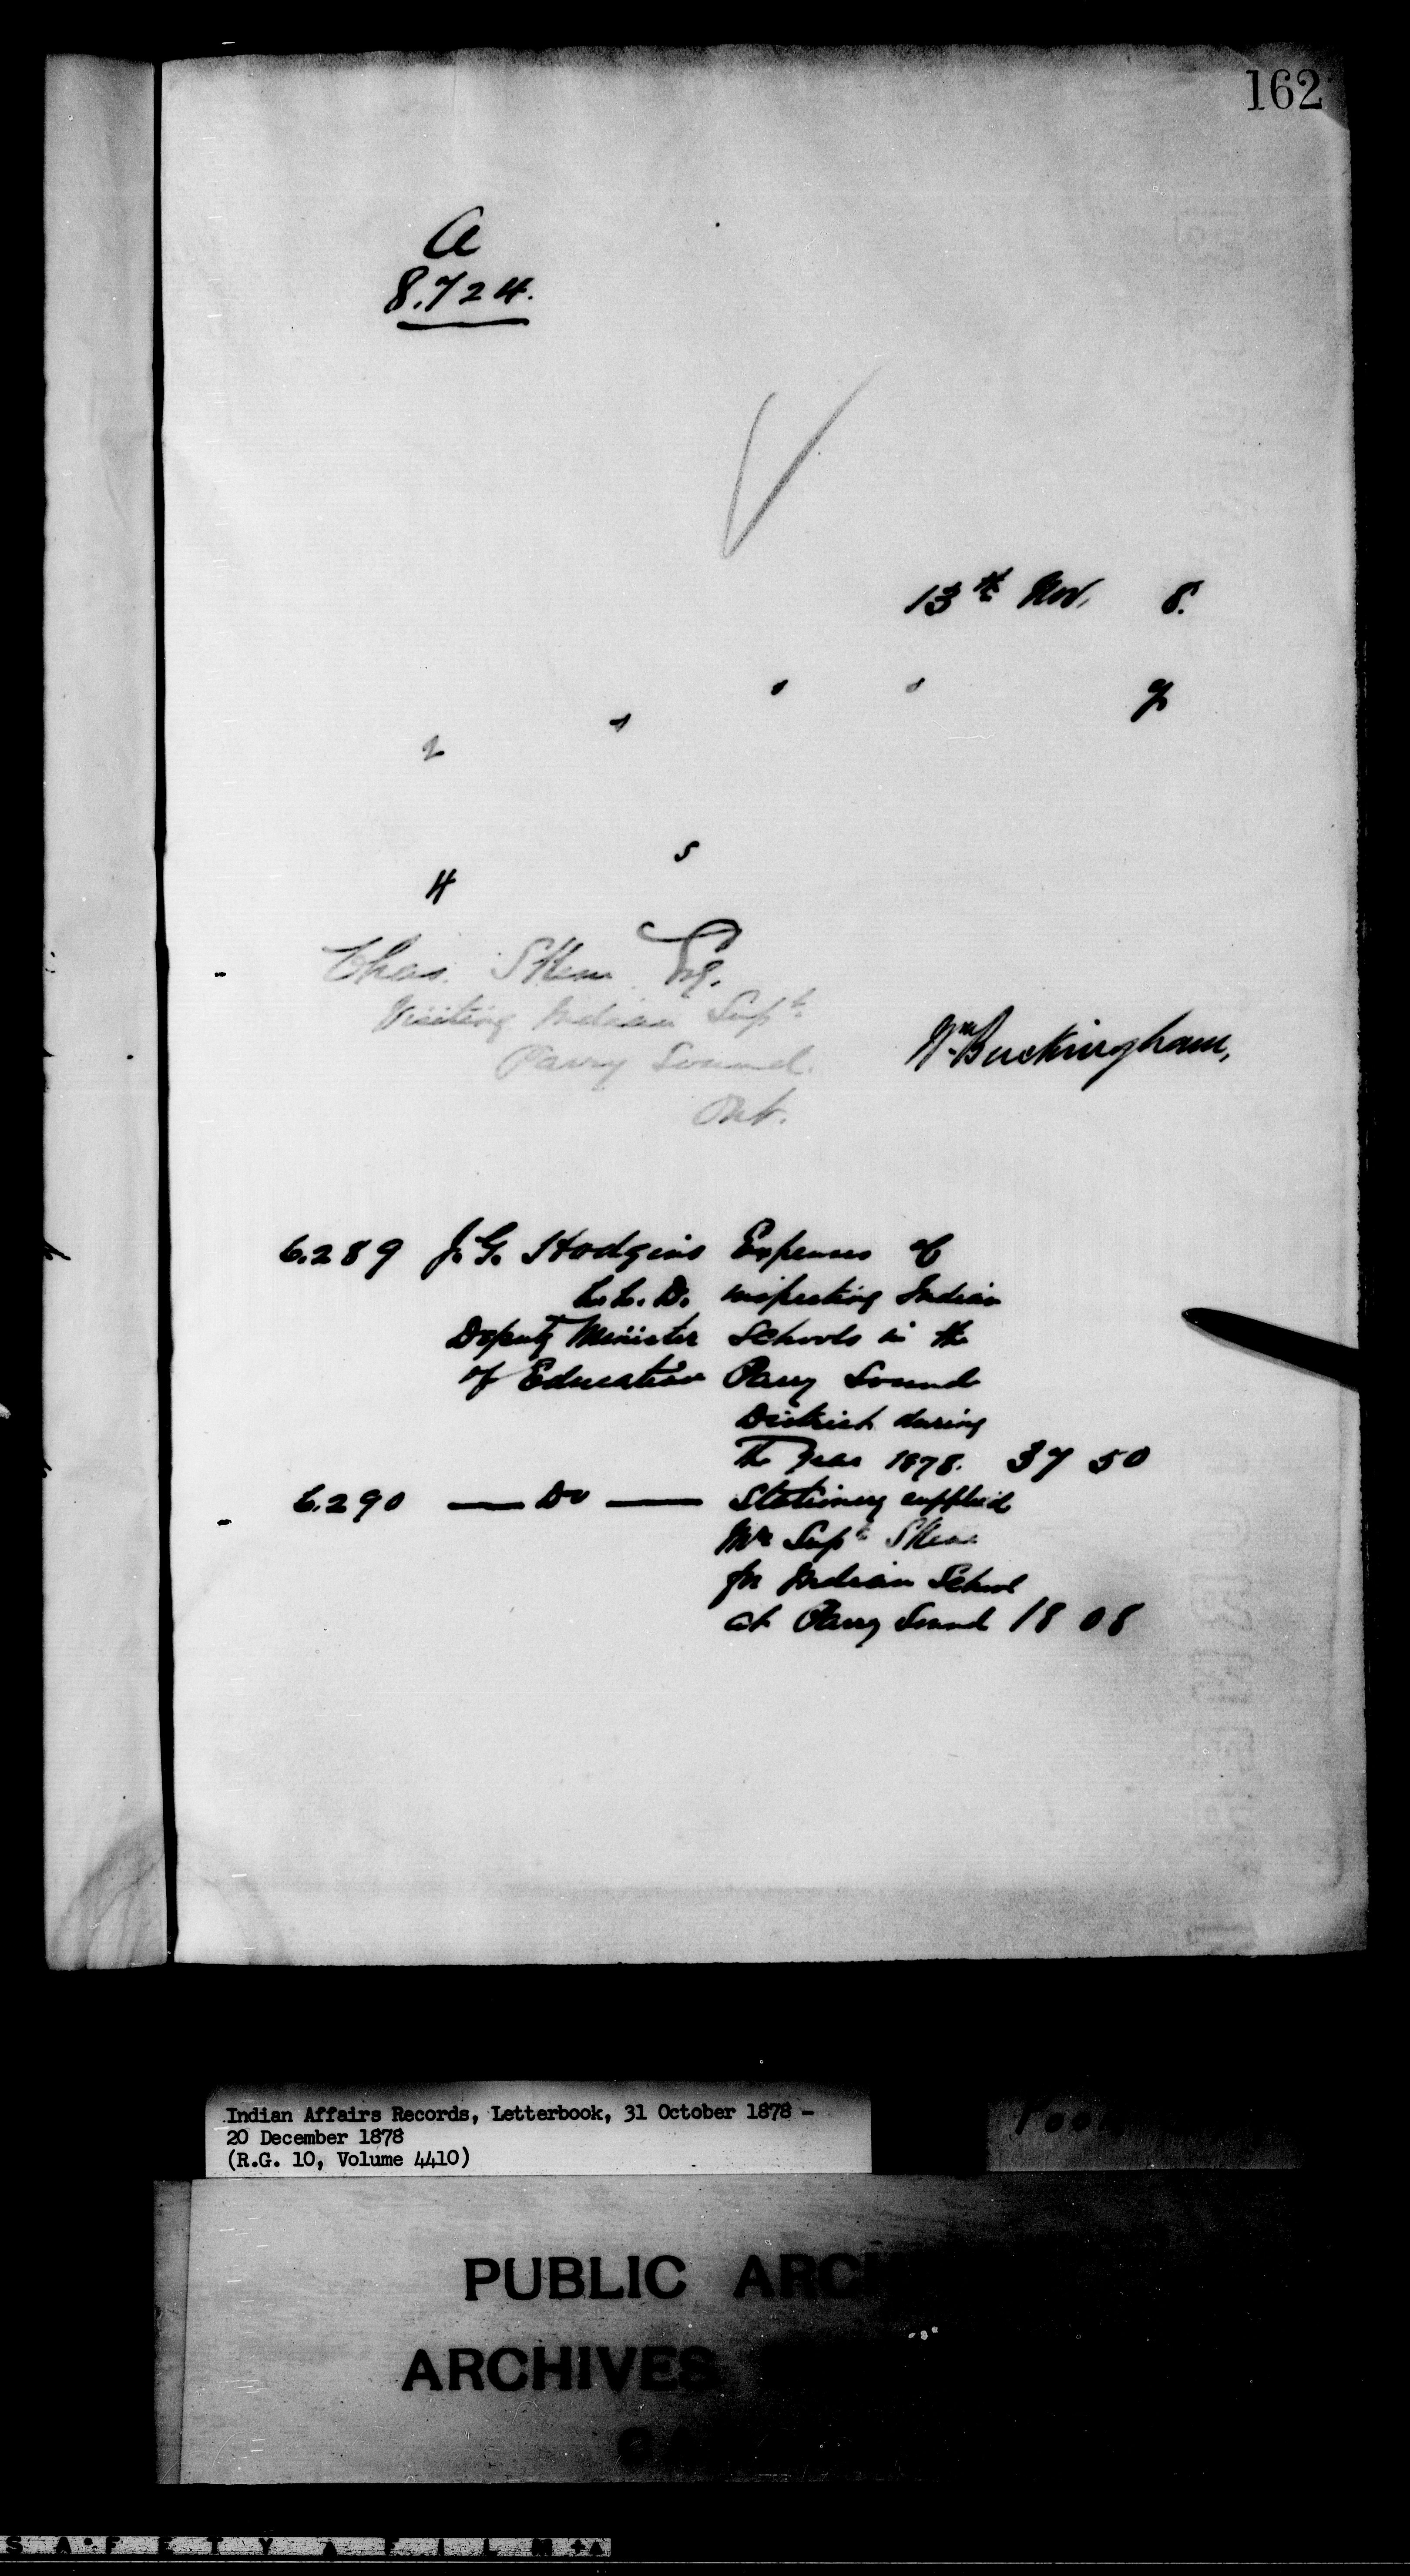 162
A
8.724.
13th Nov. 8.
2
4
5
Chas. Skene Esq.
Visiting Indian Supt.
Parry Sound.
Ont.
Wm Buckingham,
6.289 J. G. Hodgins Expenses of
L.L.D. inspecting Indian
Deputy Minister Schools in the
of Education Parry Sound
District during
the Year 1878. 37 50
6.290 — Do — Stationery supplied
Mr Supt Skene
for Indian School
at Parry Sound 18 08
Indian Affairs Records, Letterbook, 31 October 1878 -
20 December 1878
(R.G. 10, Volume 4410)
PUBLIC ARCH
ARCHIVES
CA
SAFETY FILM